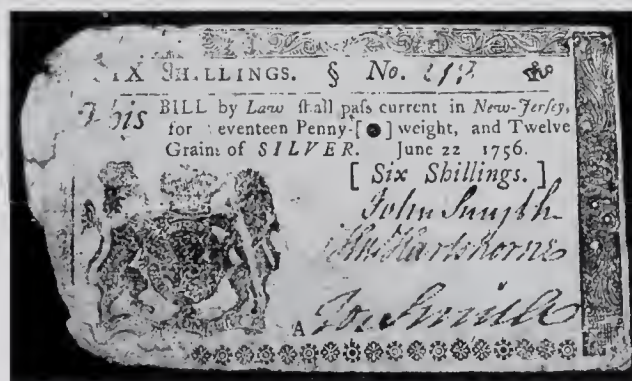 SIX SHILLINGS. § No.
This BILL by Law ſhall paſs current in New-Jerſey,
for ſeventeen Penny-[●]weight, and Twelve
Grains of SILVER. June 22 1756.
[ Six Shillings. ]
John Smyth
Hartshorne
A Jos Smith